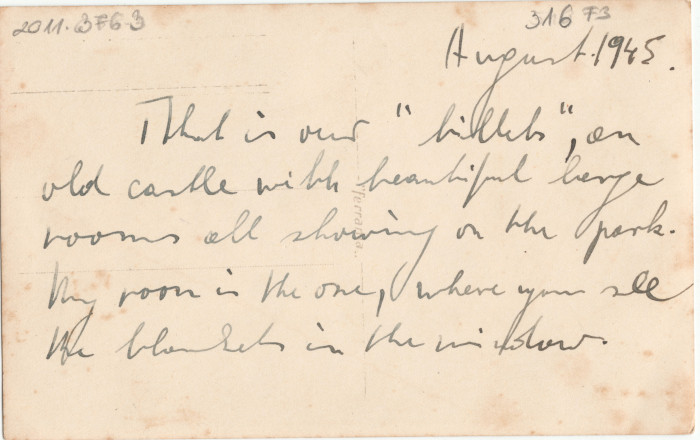 2011.3763
316 F3
August. 1945.
That is our "billets", an
old castle with beautiful large
rooms all showing on the park.
My room is the one, where you see
the blankets in the window.
Ferrania